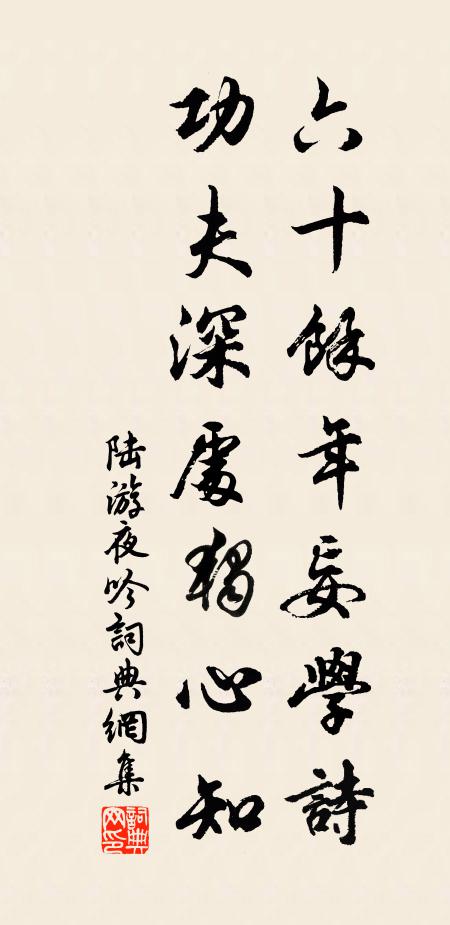 六十餘年妄學詩
功夫深處獨心知
陸游夜吟詞典網集
詞典網印